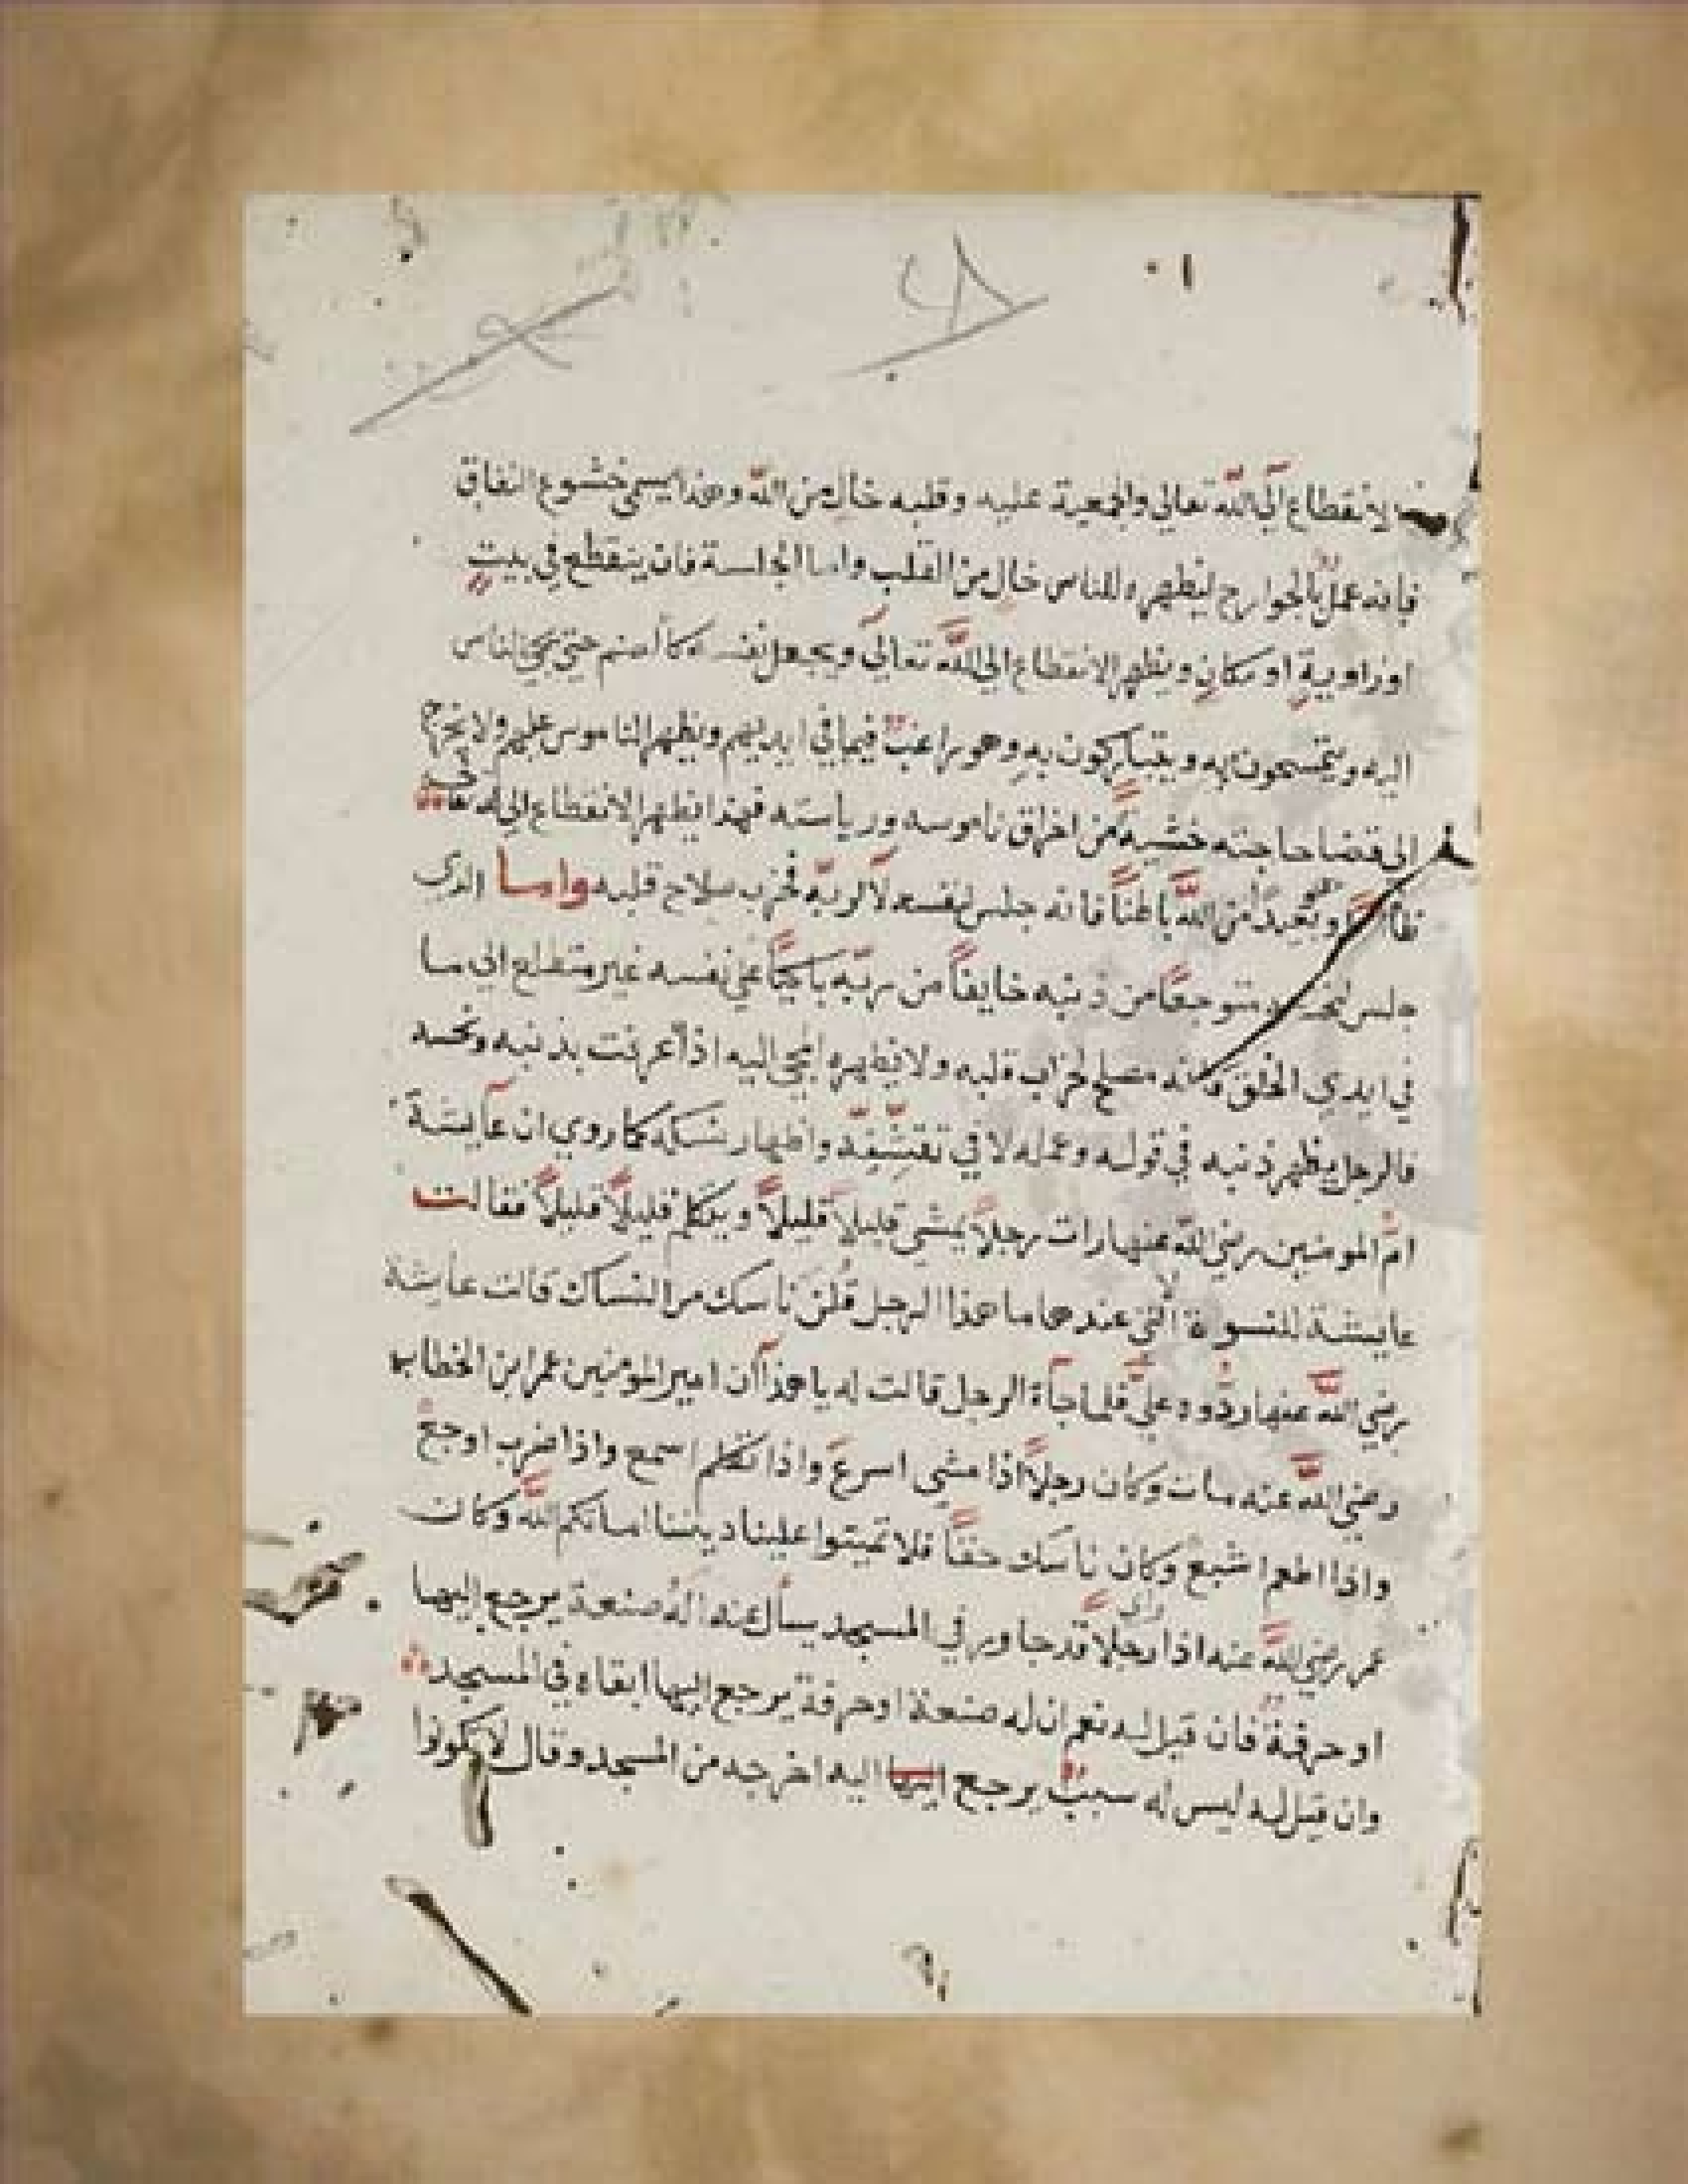 الانقطاع الى الله تعالي والجمعية عليه وقلبه خال من الله وهذا يسمى خشوع النفاق
فانه عمل بالجوارح ليظهره للناس خال من القلب واما الجلسة فان ينقطع في بيت
او زاوية او مكان ويظهر الانقطاع الى الله تعالي ويجعل نفسه كاصنم حتى تجي الناس
اليه ويتمسحون به ويتباركون به وهو راغب فيما في ايديهم ويظهر الناموس عليهم ولا يخرج
الى قضا حاجته خشية من اخراق ناموسه ورياسته فهذا يظهر الانقطاع الى الله
وبعيدا من الله باطنا فانه جلس لنفسه لا لربه فخرب صلاح قلبه واما الذي
جلس متوجعا من ذنبه خايفا من ربه باكيا على نفسه غير متطلع الى ما
في ايدي الخلق فانه مصلح لخراب قلبه ولا يظهره لمجي اليه اذا عرفت بذنبه ونحسه
فالرجل يظهر ذنبه في قوله وعمله لا في تقشفه واظهار نسكه كما روي ان عايشة
ام المومنين رضي الله عنها رات رجلا يمشي قليلا قليلا ويتكلم قليلا قليلا فقالت
عايشة للنسوة التي عندها ما هذا الرجل قلن ناسك من النساك قالت عايشة
رضي الله عنها ردوه علي فلما جآة الرجل قالت له يا هذا ان امير المومنين عمر ابن الخطاب
رضي الله عنه مات وكان رجلا اذا مشى اسرع واذا تكلم اسمع واذا ضرب اوجع
واذا اطعم اشبع وكان ناسك حقا فلا تميتوا علينا ديننا اماتكم الله وكان
عمر رضي الله عنه اذا راى رجلا قد جاور في المسجد يسأل عنه اله صنعة يرجع اليها
او حرفة فان قيل له نعم ان له صنعة او حرفة يرجع اليها ابقاه في المسجد
وان قيل له ليس له سبب يرجع اليها اليه اخرجه من المسجد وقال لا تكونوا